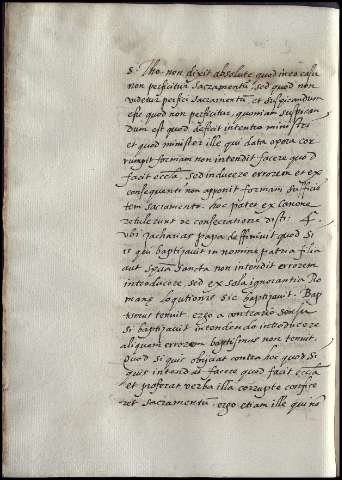 S. Tho. non dixit absolute quod in eo casu
non perficitur sacramentū, sed quod non
videtur perfici sacramentū, et suspicandum
esse quod non perficitur, quoniam suspican
dum est quod deficit intentio ministri
et quod minister ille qui data opera cor
rumpit formam non intendit facere quod
facit ecclīa sed inducere errorem et ex
consequenti non apponit formam sufficiē
tem sacramento. hoc patet ex canone
retulerunt de consecratione disti. 4.
vbi zacharias papa deffiniuit quod si
is qui baptizauit in nomine patria filia
aut spūa sancta non intendit errorem
introducere sed ex sola ignorantia Ro
mane loqutionis sic baptizauit. Bap
tismus tenuit. ergo a contrario sensu
si baptizauit intendendo introducere
aliquem errorem baptismus non tenuit.
Quod si quis obijciat contra hoc quod si
quis intendat facere quod facit ecclīa
et proferat verba illa corrupte confice
ret sacramentū. ergo etiam ille qui nō